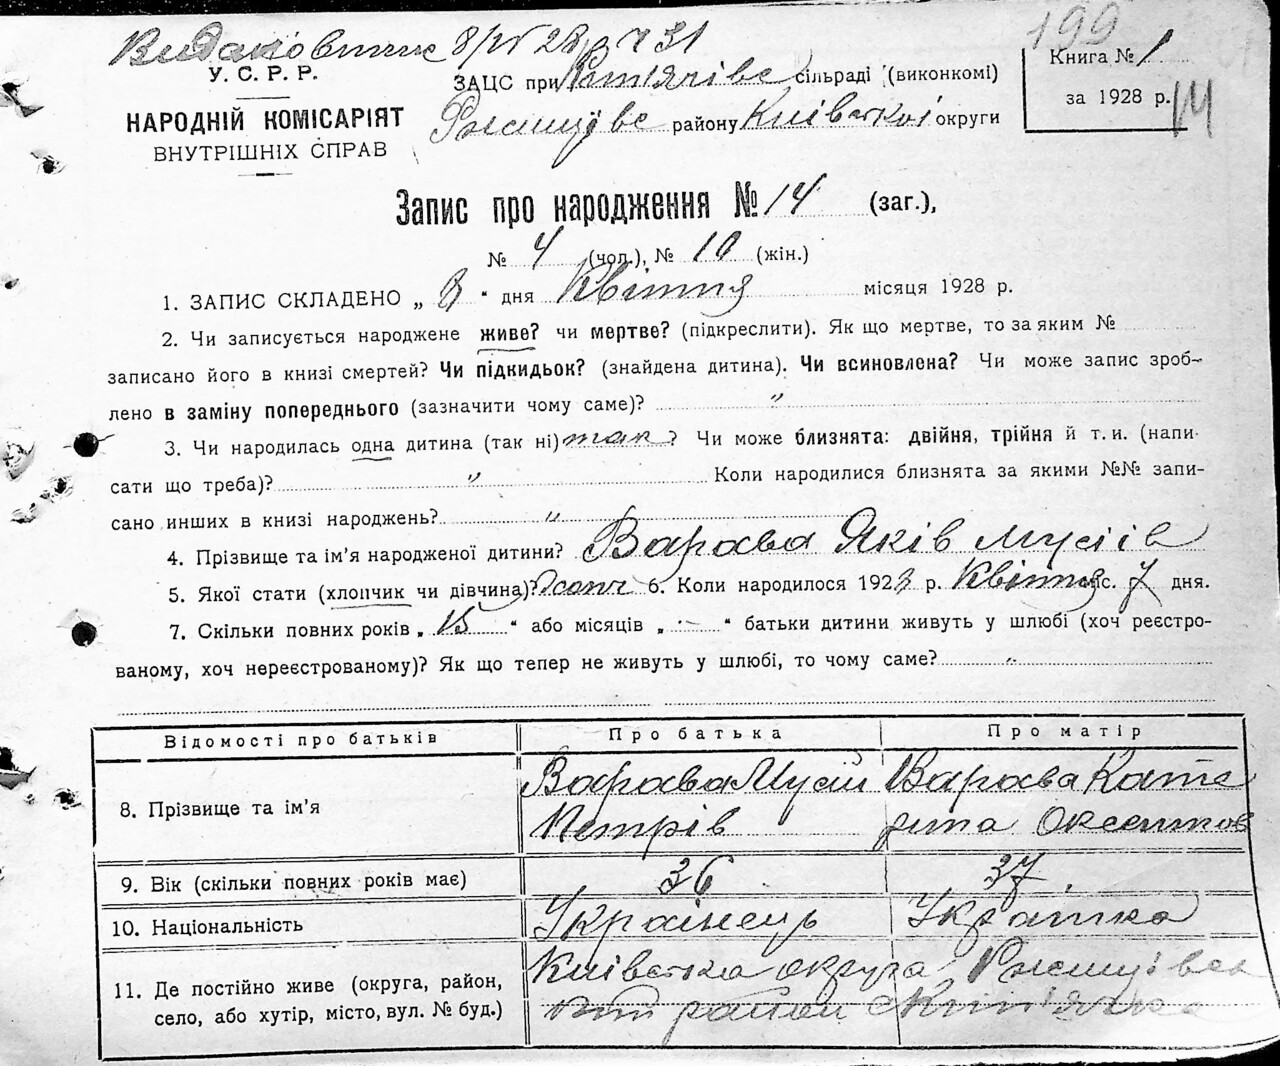 199
У. С. Р. Р.
НАРОДНІЙ КОМІСАРІЯТ
ВНУТРІШНІХ СПРАВ
ЗАЦС при сільраді (виконкомі)
району Київської округи
Книга № 1
за 1928 р.
14
Запис про народження № 14 (заг.),
№ 4 (чол.), № 10 (жін.)
1. ЗАПИС СКЛАДЕНО „ 8 “ дня Квітня місяця 1928 р.
2. Чи записується народжене живе? чи мертве? (підкреслити). Як що мертве, то за яким №
записано його в книзі смертей? Чи підкидьок? (знайдена дитина). Чи всиновлена? Чи може запис зроб-
лено в заміну попереднього (зазначити чому саме)? "
3. Чи народилась одна дитина (так ні) так? Чи може близнята: двійня, трійня й т. и. (напи-
сати що треба)? " Коли народилися близнята за якими №№ запи-
сано инших в книзі народжень? "
4. Прізвище та ім’я народженої дитини? Варава Яків Мусіїв
5. Якої стати (хлопчик чи дівчина)? 6. Коли народилося 1928 р. Квітня с. 7 дня.
7. Скільки повних років „ 15 “ або місяців „ - “ батьки дитини живуть у шлюбі (хоч реєстро-
ваному, хоч нереєстрованому)? Як що тепер не живуть у шлюбі, то чому саме? "
Відомості про батьків Про батька Про матір
8. Прізвище та ім’я Варава Мусій Петрів Варава Кате рина Оксентов
9. Вік (скільки повних років має) 36 37
10. Національність Українець Українка
11. Де постійно живе (округа, район, Київська округа
село, або хутір, місто, вул. № буд.) район